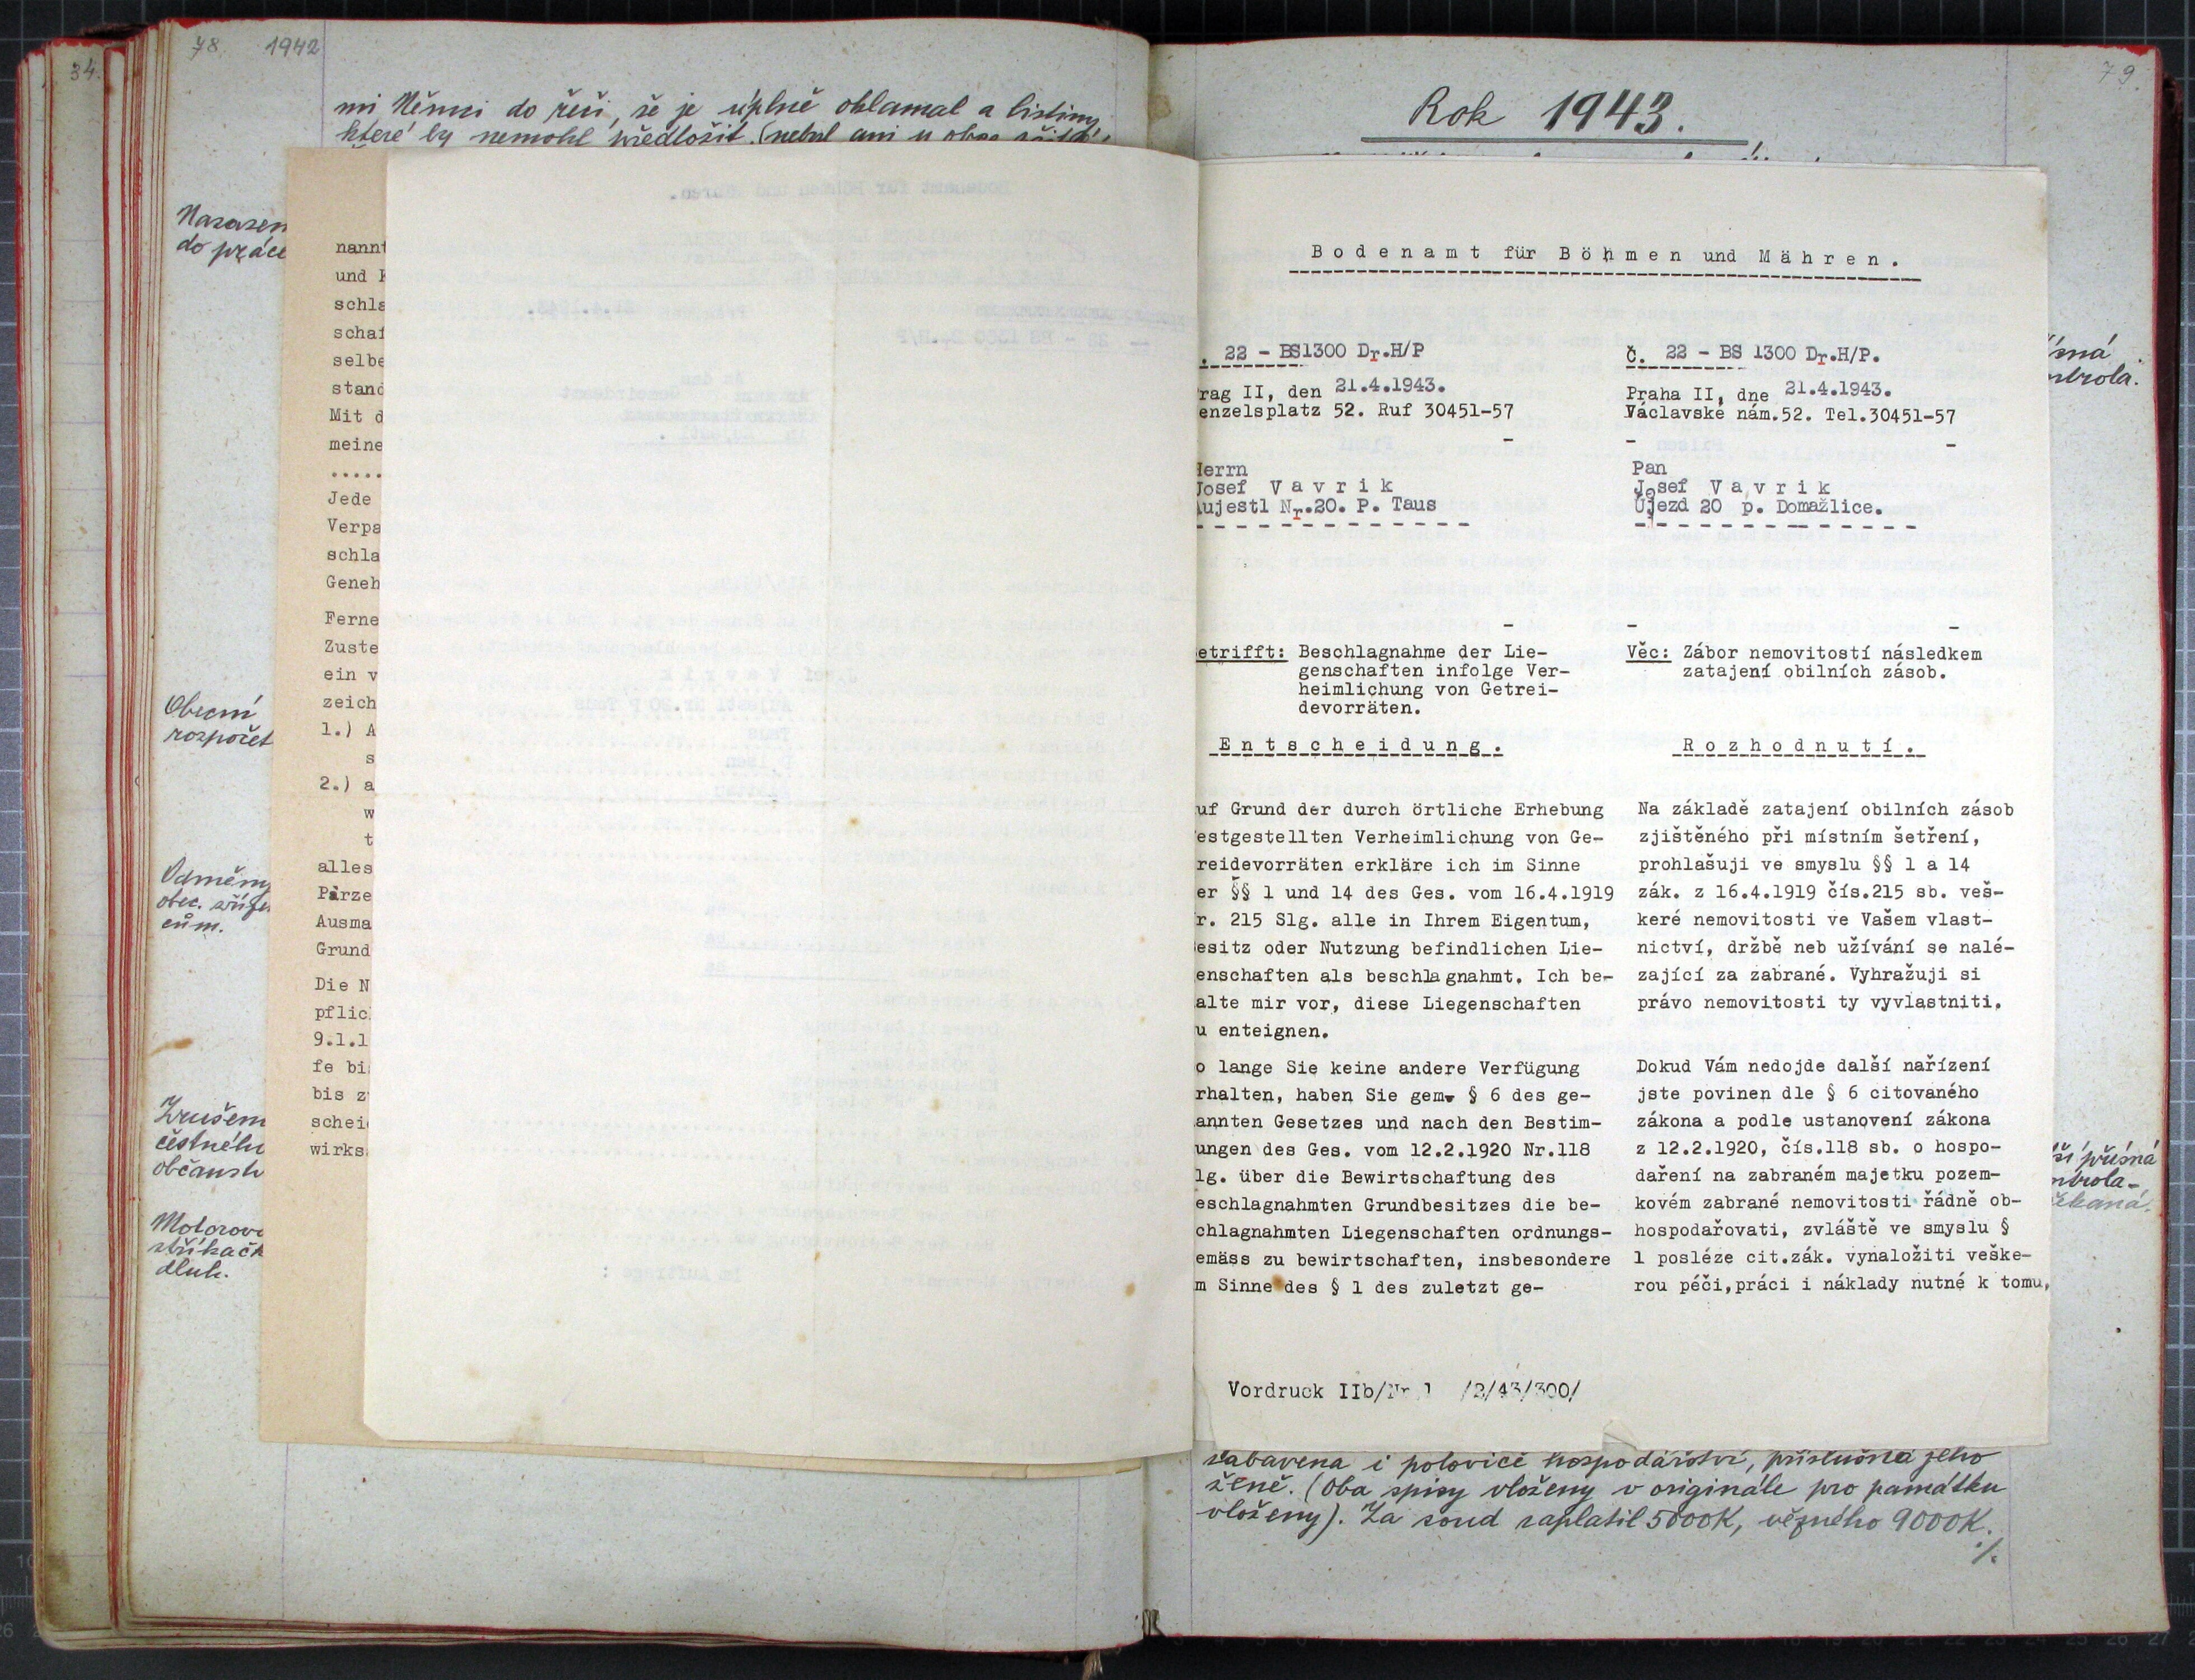 34.
78. 1942
mi Němci do řeči, že je úplně oklamal a listiny,
které by nemohl předložit. (nebyl ani u obce
do práce
Obecní
rozpočet
Odměny
obec. zříze
cům.
Zrušení
čestného
občanst
Motorov
stříkačk
dluh.
nannt
und
schla
schaf
selbe
stand
Mit d
meine
.....
Jede
Verpa
schla
Geneh
Ferne
Zuste
ein v
zeich
1.) A
s
2.) a
w
t
alles
Parze
Ausma
Grund
Die N
pflic
9.1.1
fe bi
bis z
schei
wirks
79.
Rok 1943.
Bodenamt für Böhmen und Mähren.
. 22 - BS1300 Dr.H/P
rag II, den 21.4.1943.
enzelsplatz 52. Ruf 30451-57
Herrn
Josef Vavrik
Aujestl Nr.20. P. Taus
etrifft: Beschlagnahme der Lie-
genschaften infolge Ver-
heimlichung von Getrei-
devorräten.
Entscheidung.
uf Grund der durch örtliche Erhebung
estgestellten Verheimlichung von Ge-
reidevorräten erkläre ich im Sinne
er §§ 1 und 14 des Ges. vom 16.4.1919
r. 215 Slg. alle in Ihrem Eigentum,
esitz oder Nutzung befindlichen Lie-
enschaften als beschlagnahmt. Ich be-
alte mir vor, diese Liegenschaften
u enteignen.
o lange Sie keine andere Verfügung
rhalten, haben Sie gem. § 6 des ge-
annten Gesetzes und nach den Bestim-
ungen des Ges. vom 12.2.1920 Nr.118
lg. über die Bewirtschaftung des
eschlagnahmten Grundbesitzes die be-
chlagnahmten Liegenschaften ordnungs-
emäss zu bewirtschaften, insbesondere
m Sinne des § 1 des zuletzt ge-
Vordruck IIb/Nr 1 /2/43/300/
Č. 22 - BS 1300 Dr.H/P.
Praha II, dne 21.4.1943.
Václavské nám.52. Tel.30451-57
Pan
Josef Vavrik
Újezd 20 p. Domažlice.
Věc: Zábor nemovitostí následkem
zatajení obilních zásob.
Rozhodnutí.
Na základě zatajení obilních zásob
zjištěného při místním šetření,
prohlašuji ve smyslu §§ 1 a 14
zák. z 16.4.1919 čís.215 sb. veš-
keré nemovitosti ve Vašem vlast-
nictví, držbě neb užívání se nalé-
zající za zabrané. Vyhražuji si
právo nemovitosti ty vyvlastniti.
Dokud Vám nedojde další nařízení
jste povinen dle § 6 citovaného
zákona a podle ustanovení zákona
z 12.2.1920, čís.118 sb. o hospo-
daření na zabraném majetku pozem-
kovém zabrané nemovitosti řádně ob-
hospodařovati, zvláště ve smyslu §
1 posléze cit.zák. vynaložiti veške-
rou péči,práci i náklady nutné k tomu,
ísná
ntrola.
ší přísná
ntrola-
zabavena i polovice hospodářství, příslušná jeho
ženě. (Oba spisy vloženy v originále pro památku
vloženy). Za soud zaplatil 5000K, vězného 9000K.
./.